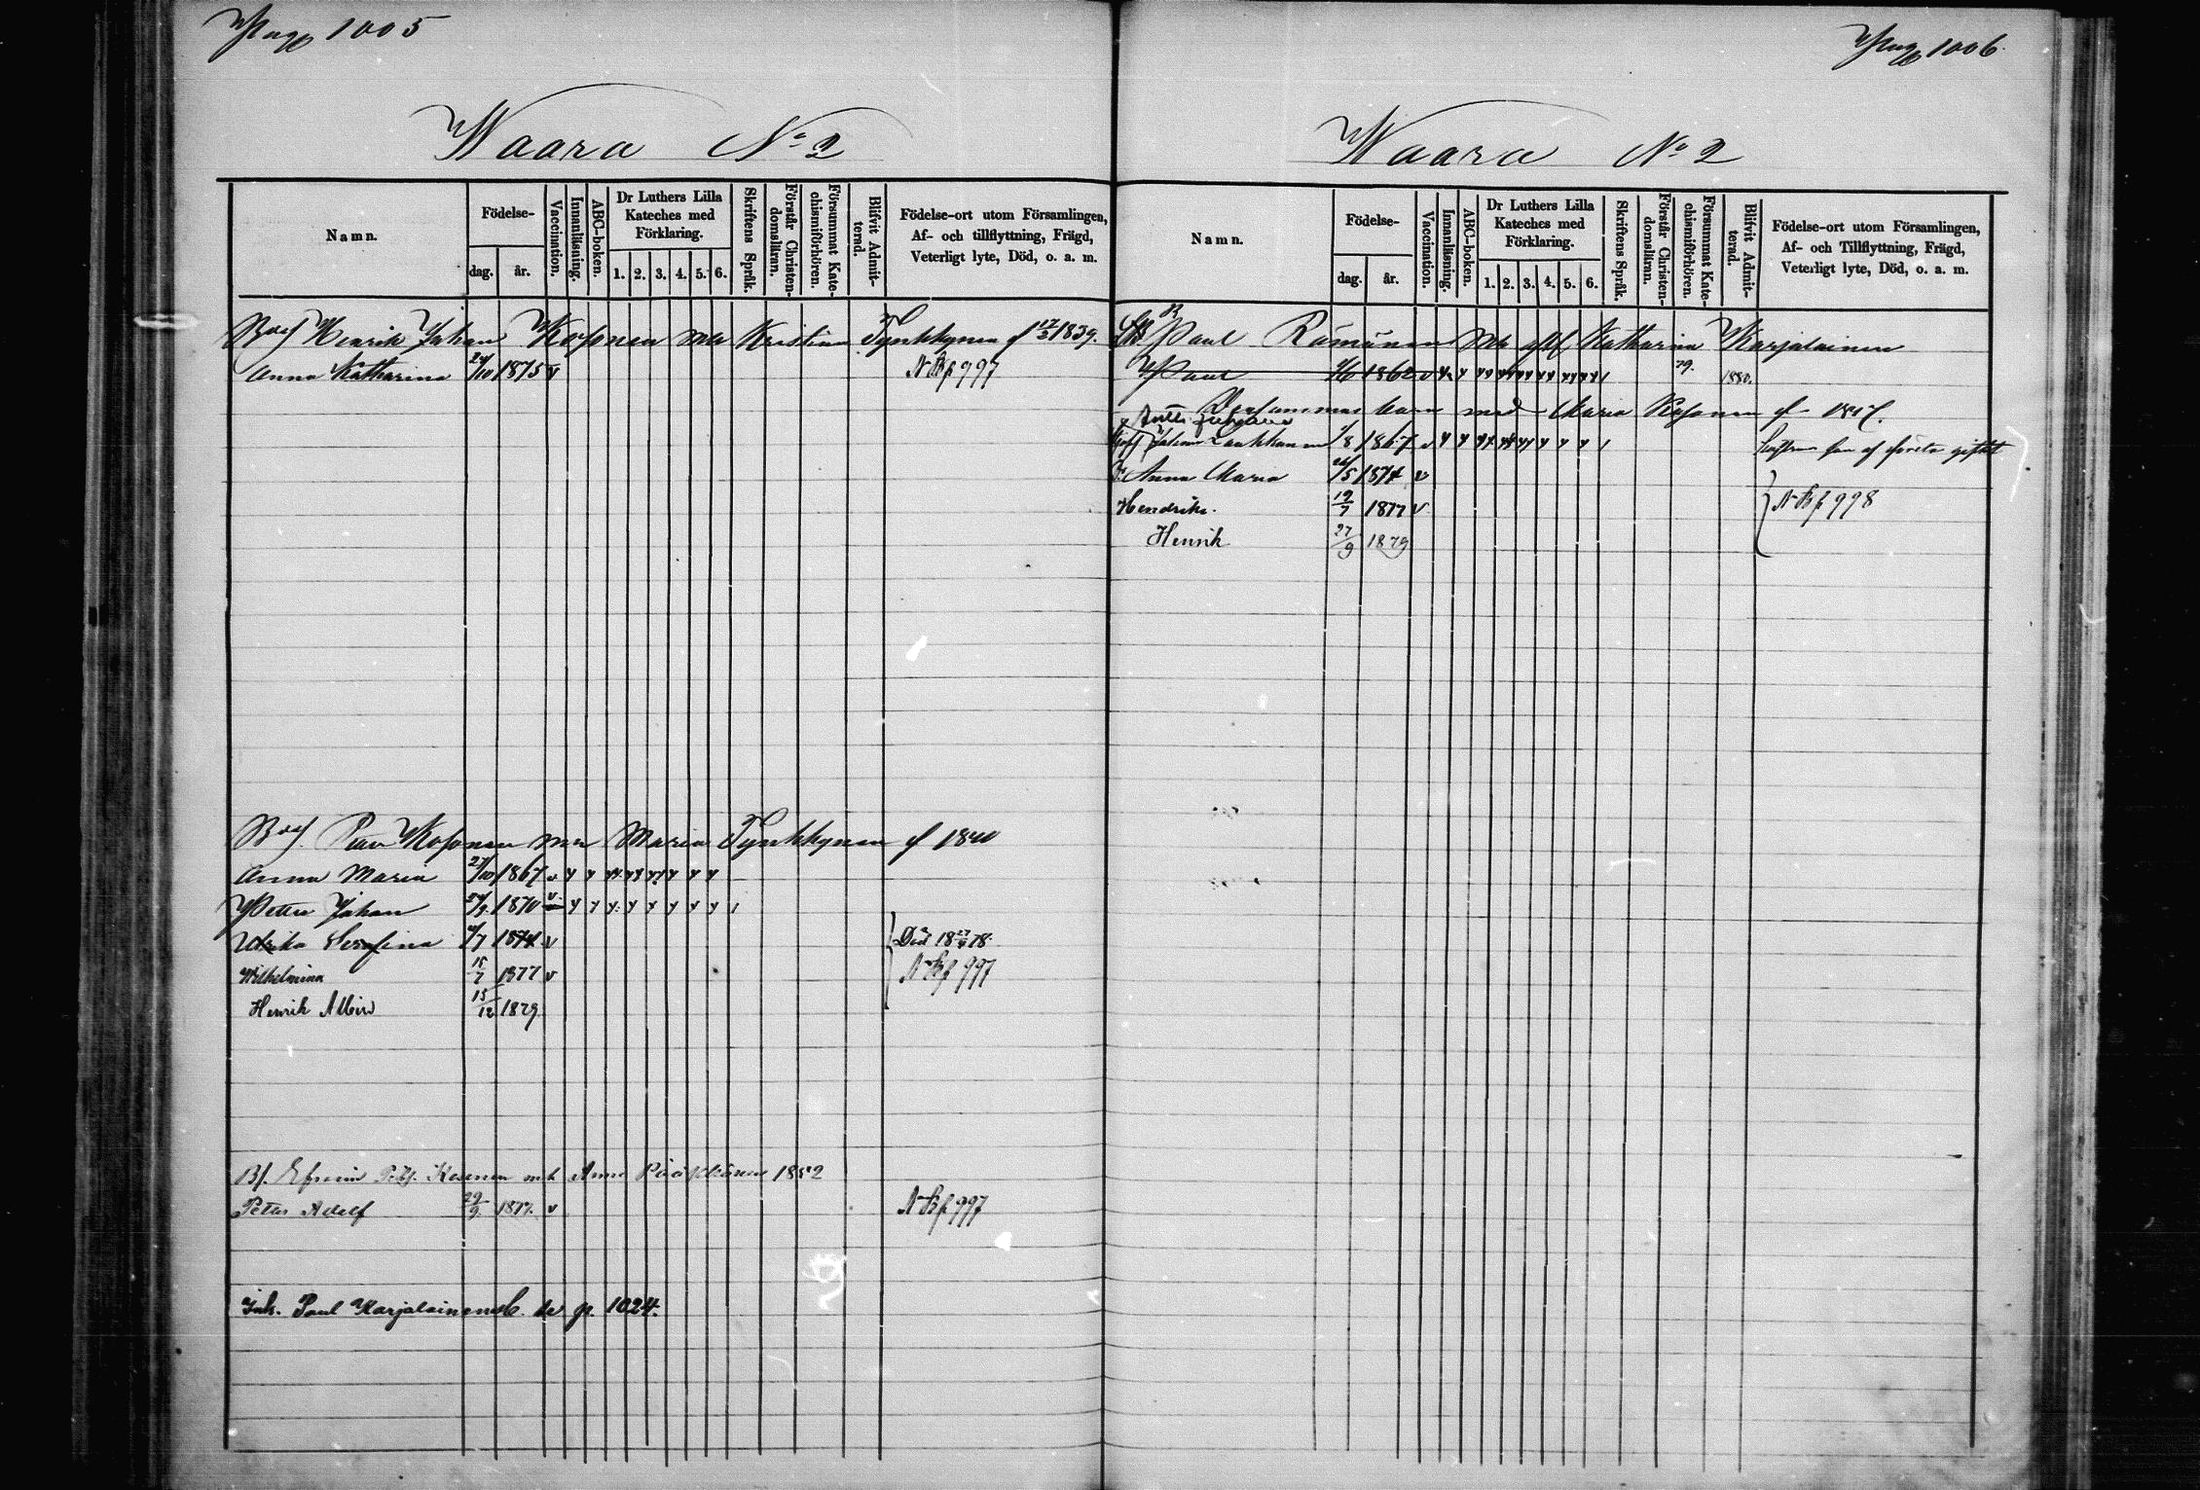 Pag 1005
Waara No 2
Namn.
Födelse-
dag.
år.
Vaccination.
Innanläsning.
ABC-boken.
Dr Luthers Lilla
Kateches med
Förklaring.
1. 2. 3. 4. 5. 6.
Skriftens Språk.
Förstår Christen-
domsläran.
Försummat Kate-
chismiförhören.
Blifvit Admit-
terad.
Födelse-ort utom Församlingen,
Af- och tillflyttning, Frägd,
Veterligt lyte, Död, o. a. m.
Henrik Johan Kosonen Kristina Tynkkynen f 17/2 1839.
Anna Katharina 24/10 1875 v N Bf 997
Kosonen Maria Tynkkynen f 1840
Anna Maria 27/10 1867 v y y y y y y y y
Petter Johan 1870 v y y y y y y y y
Ulrika Serafina 1874 v Död 18 27/4 78
Wilhelmina 18/7 1877 v N Bf 997
Henrik Albin 15/12 1879
Kosonen Anna Pääskönen 1852
Petter Adolf 29/9 1877. v N Bf 997
Inh. Paul Karjalainens b. se p. 1024.
Pag 1006
Waara No 2
Namn.
Födelse-
dag.
år.
Vaccination.
Innanläsning.
ABC-boken.
Dr Luthers Lilla
Kateches med
Förklaring.
1. 2. 3. 4. 5. 6.
Skriftens Språk.
Förstår Christen-
domsläran.
Försummat Kate-
chismiförhören.
Blifvit Admit-
terad.
Födelse-ort utom Församlingen,
Af- och Tillflyttning, Frägd,
Veterligt lyte, Död, o. a. m.
Paul Katharina Karjalainen
Paul 1862 v 79. 1880.
barn med Maria Kosonen f
Johan 1/8 1867 v
Anna Maria 26/5 1874 v
Hendrika 19/7 1877 v N Bf 998
Henrik 27/9 1879